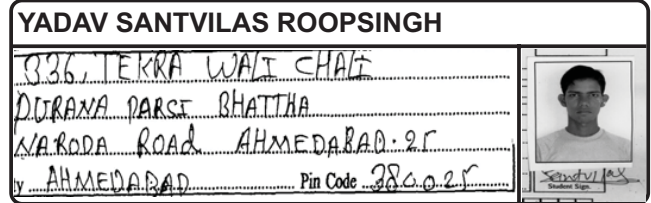 YADAV SANTVILAS ROOPSINGH
336, TEKRA WALI CHALI
PURANA PARSI BHATTHA
NARODA ROAD AHMEDABAD.25
y AHMEDABAD Pin Code 380025
Santvilas
Student Sign.